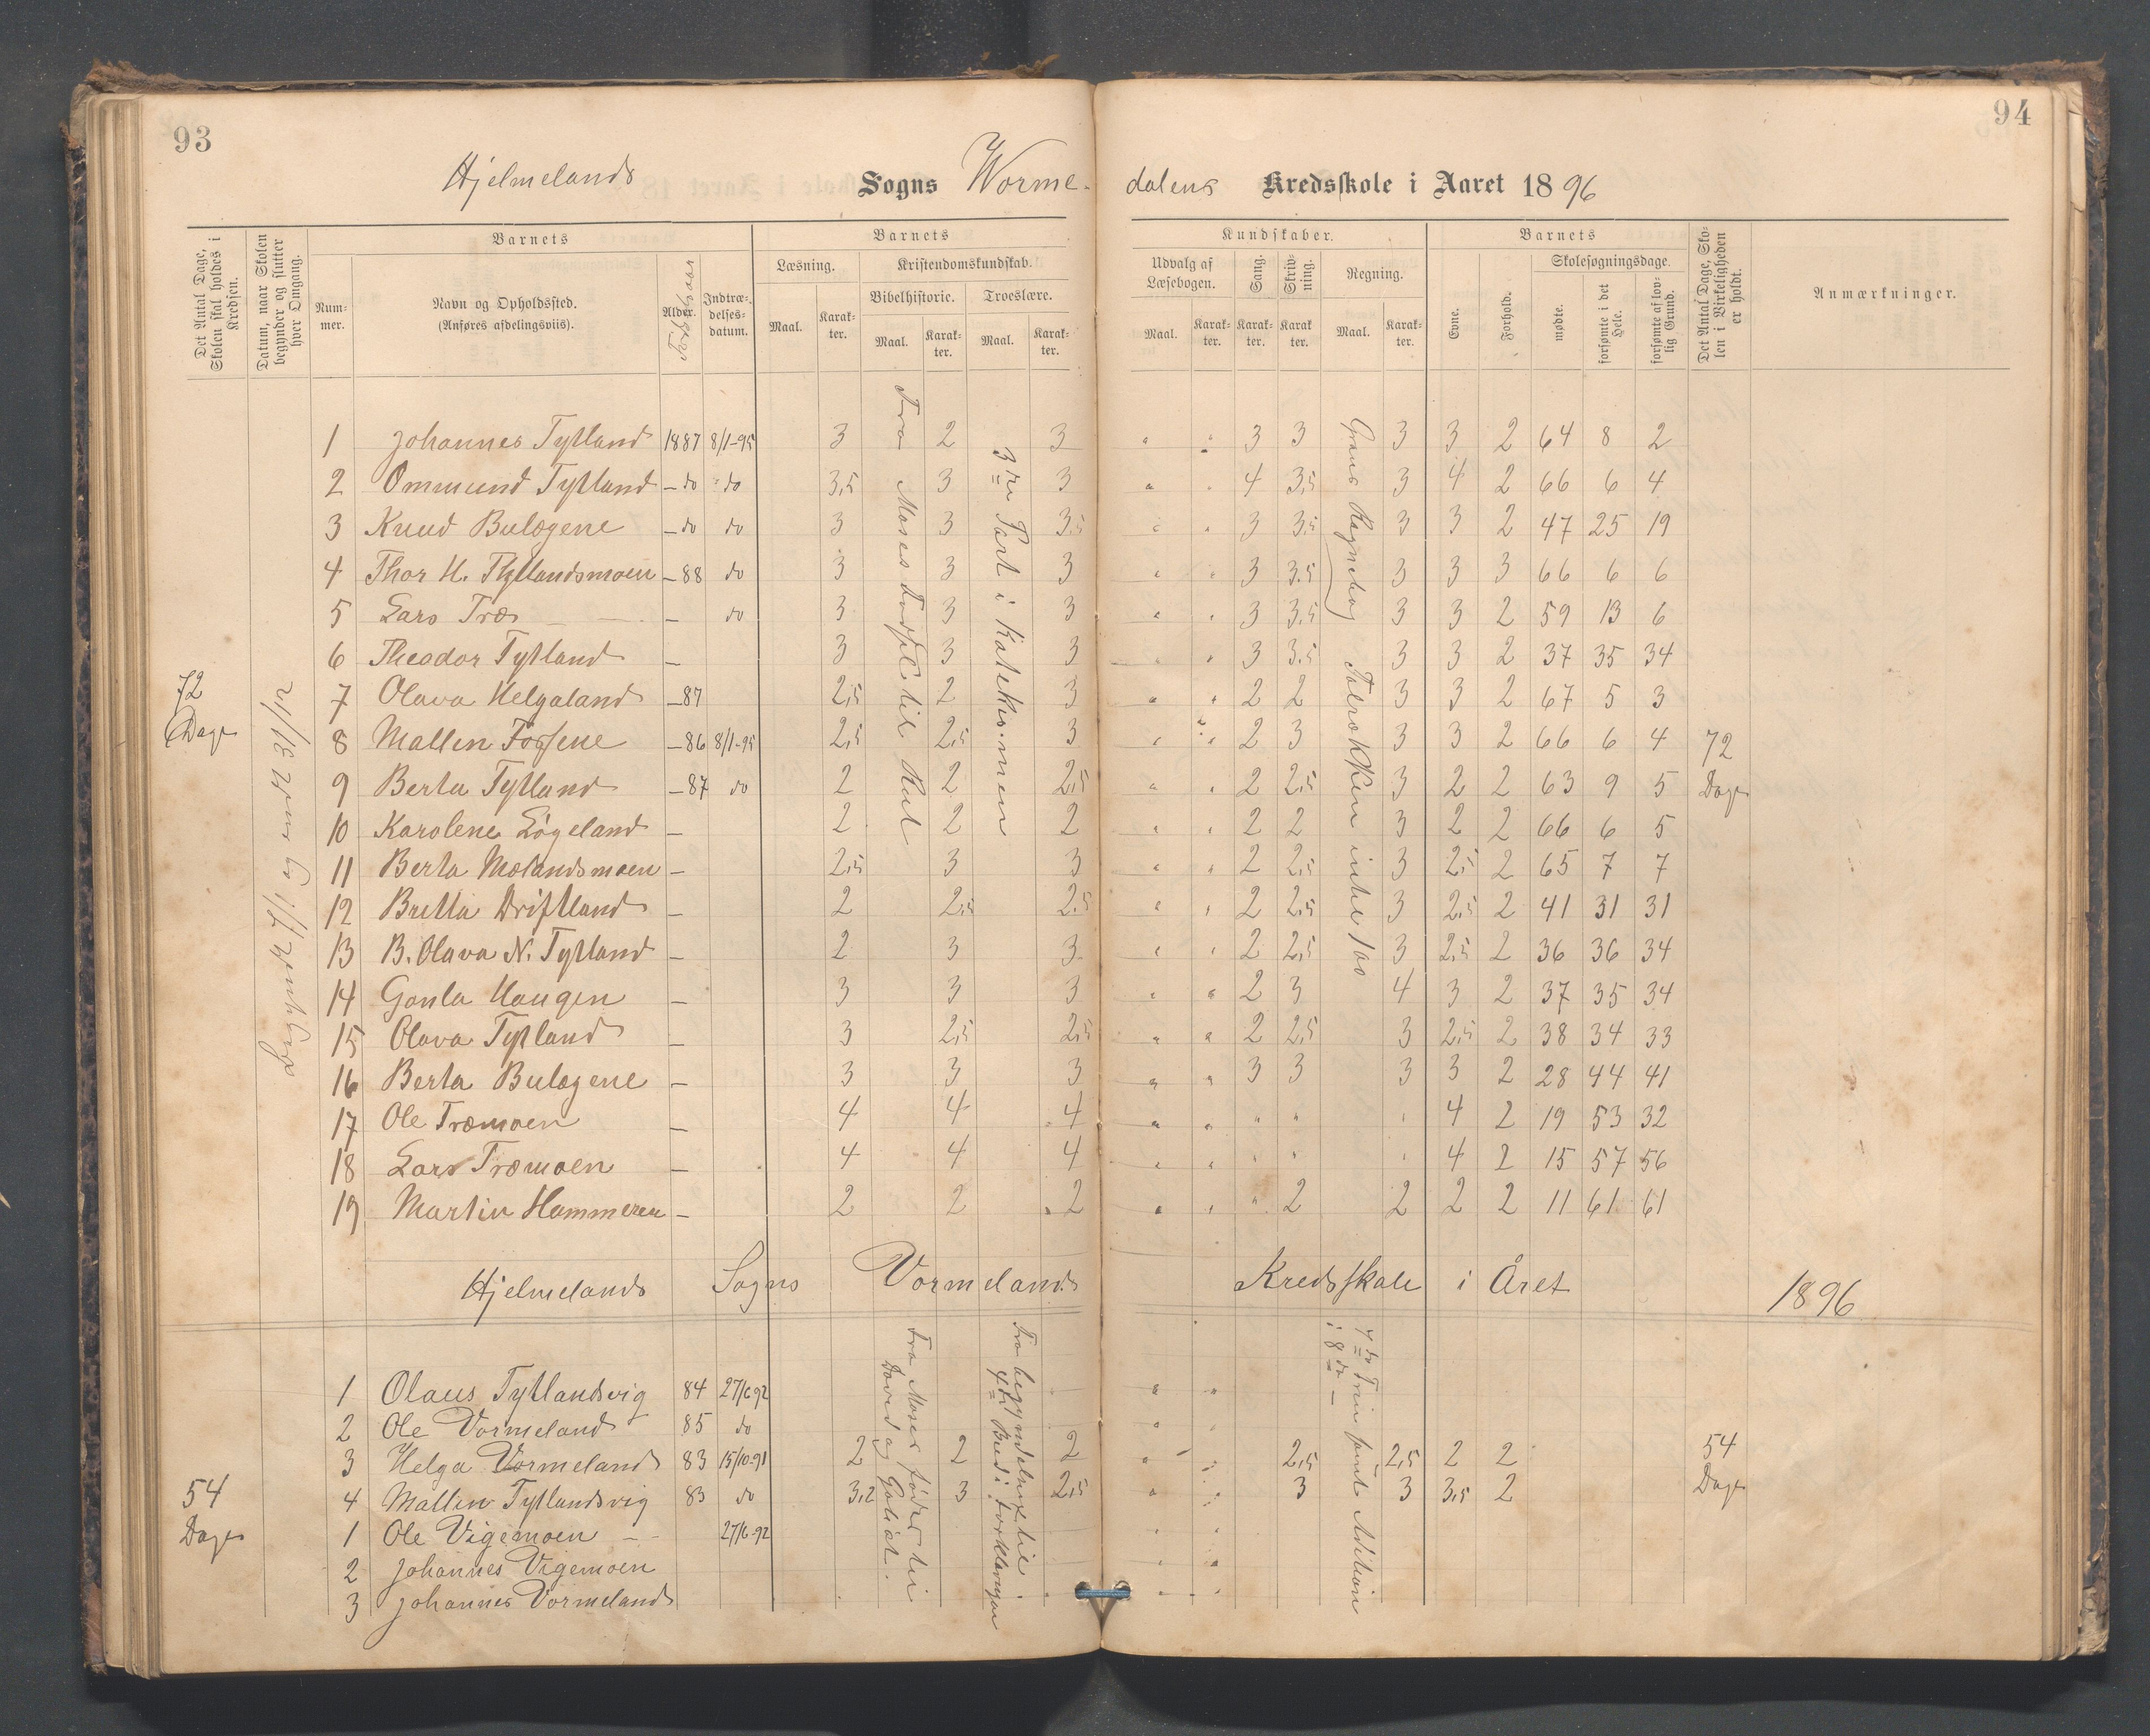 93
94
Hjelmelands Sogns Worme- dalens Kredsskole i Aaret 1896
Det Antal Dage, Skolen skal holdes i Kredsen.
Datum, naar Skolen begynder og slutter hver Omgang.
Barnets
Nummer.
Navn og Opholdssted.
(Anføres afdelingsviis).
Alder.
Indtrædelses-datum.
Barnets
Læsning.
Maal. Karakter.
Kristendomskundskab.
Bibelhistorie. Troeslære.
Maal. Karakter. Maal. Karakter.
Kundskaber.
Udvalg af Læsebogen.
Maal. Karakter.
Sang.
Karakter.
Skrivning.
Karakter.
Regning.
Maal. Karakter.
Barnets
Evne.
Forhold.
Skolesøgningsdage.
mødte.
forsømte i det Hele.
forsømte af lovlig Grund.
Det Antal Dage, Skolen i Virkeligheden er holdt.
Anmærkninger.
72 Dage
begyndt 7/1 og endt 31/12
Fra Moses Fødsel til Rut
3die Part i Katekismen
72 Dage
1 Johannes Tytland 1887 8/1-95 3 2 3 " " 3 3 3 3 2 64 8 2
2 Ommund Tytland - do do 3,5 3 3 " " 4 3,5 3 4 2 66 6 4
3 Knud Bulægene - do do 3 3 3,5 " " 3 3,5 3 3 2 47 25 19
4 Thor H. Tytlandsmoen - 88 do 3 3 3 " " 3 3.5 3 3 3 66 6 6
5 Lars Træ - do 3 3 3 " " 3 3,5 3 3 2 59 13 6
6 Theodor Tytland - 3 3 3 " " 3 3.5 3 3 2 37 35 34
7 Olava Helgaland - 87 2,5 2 3 " " 2 2 3 3 2 67 5 3
8 Mallin Fossene - 86 8/1-95 2,5 2,5 3 " " 2 3 3 3 2 66 6 4
9 Berta Tytland - 87 do 2 2 2,5 " " 2 2,5 3 2 2 63 9 5
10 Karolene Løgeland - 2 2 2 " " 2 2 3 2 2 66 6 5
11 Berta Mælandsmoen - 2,5 3 3 " " 2 2,5 3 2,5 2 65 7 7
12 Britta Driftland - 2 2,5 2.5 " " 2 2,5 3 2,5 2 41 31 31
13 B. Olava N. Tytland - 2 3 3 " " 2 2,5 3 2,5 2 36 36 34
14 Gonla Haugen - 3 3 3 " " 2 3 4 3 2 37 35 34
15 Olava Tytland - 3 2,5 2,5 " " 2 2,5 3 2,5 2 38 34 33
16 Berta Bulægene - 3 3 3 " " 3 3 3 3 2 28 44 41
17 Ole Træmoen - 4 4 4 " " " " " 4 2 19 53 32
18 Lars Træmoen - 4 4 4 " " " " " 4 2 15 57 56
19 Martin Hammeren - 2 2 2 " " " 2 2 2 2 11 61 61
Hjelmelands Sogns Vormelands Kredsskole i Året 1896
54 Dage
Fra Moses fødes til David og Goliat.
Fra begyndelsen til 4de Bud i Forklaringen
54 Dage
1 Olaus Tytlandsvig 84 27/6 92 " "
2 Ole Vormeland 85 do "
3 Helga Vormeland 83 15/10-91 2 2 2 " " 2,5 2,5 2 2
4 Mallin Tytlandsvig 83 do 3,2 3 2,5 " " 3 3 3,5 2
1 Ole Vigemoen - - 27/6-92 " "
2 Johannes Vigemoen " "
3 Johannes Vormeland " "